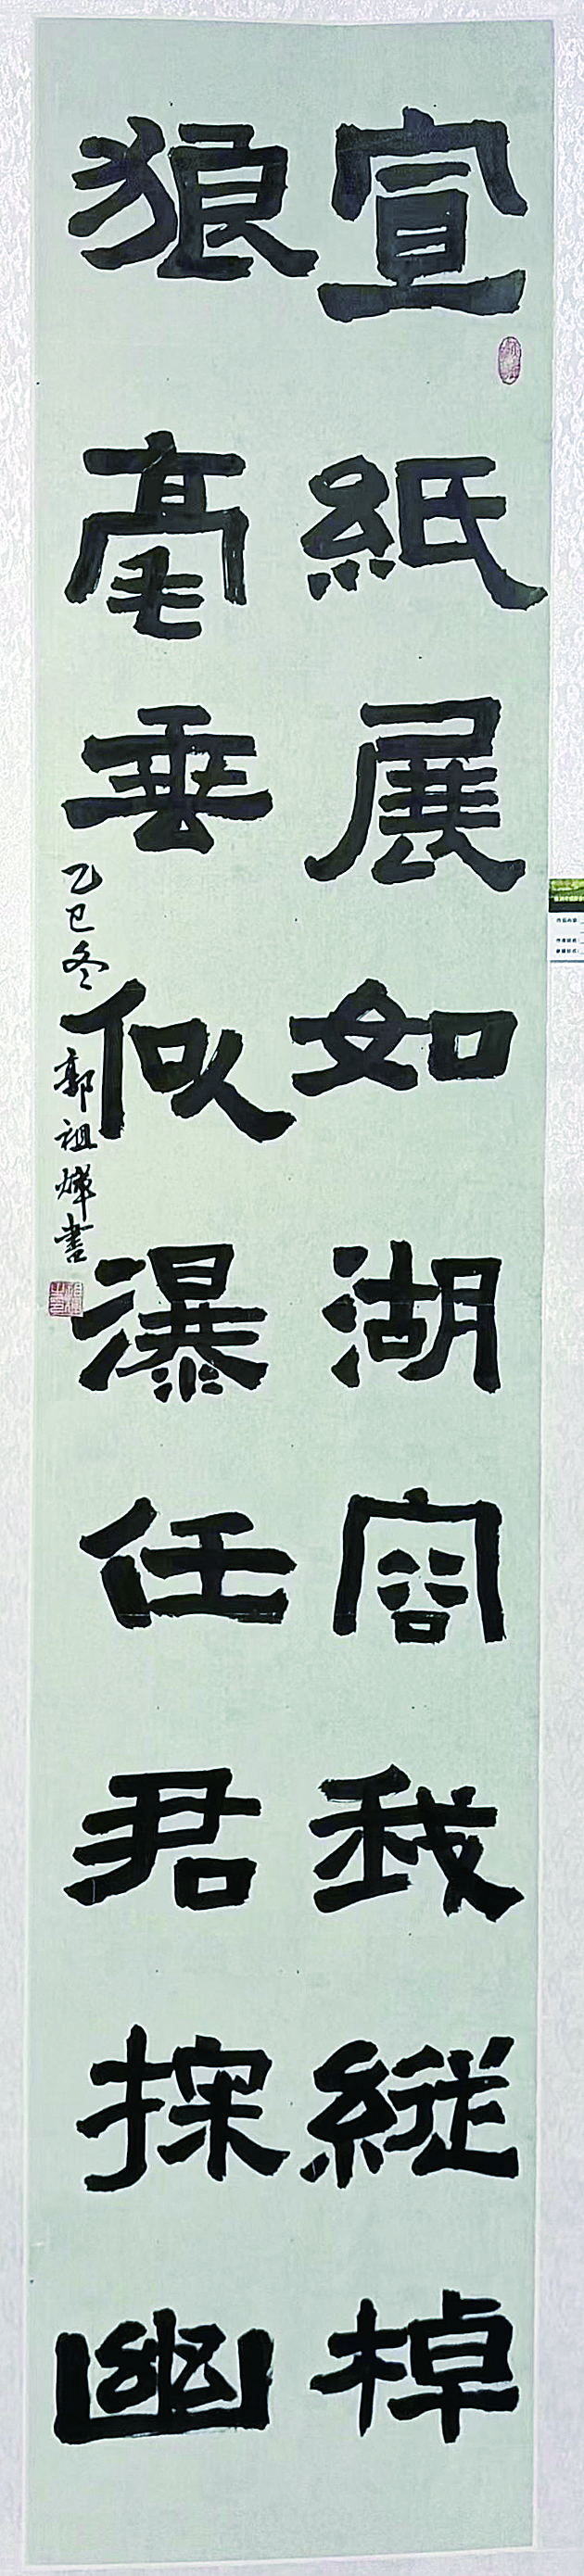 宣紙展如湖容我縱棹
狼毫垂似瀑任君探幽
乙巳冬 郭祖燁書